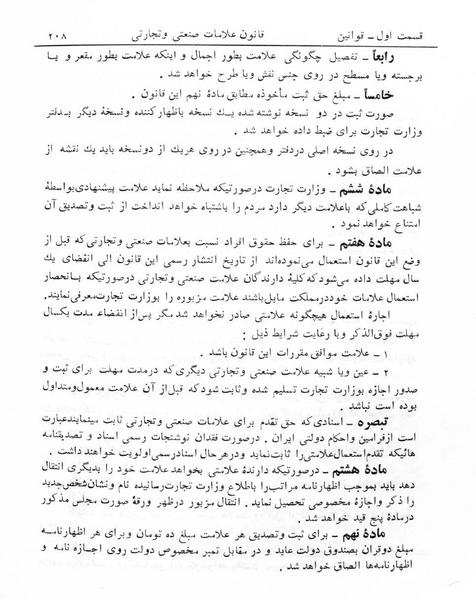 قسمت اول ـ قوانین قانون علامات صنعتی وتجارتی ۲۰۸
رابعاً ـ تفصیل چگونگی علامت بطور اجمال و اینکه علامت بطور مقعر و یا
برجسته ویا مسطح در روی جنس نقش ویا طرح خواهد شد .
خامساً ـ مبلغ حق ثبت مأخوذه مطابق مادهٔ نهم این قانون .
صورت ثبت در دو نسخه نوشته شده یك نسخه باظهار کننده ونسخه دیگر بدفتر
وزارت تجارت برای ضبط داده خواهد شد .
در روی نسخه اصلی در دفتر وهمچنین در روی هریك از دو نسخه باید یك نقشه از
علامت الصاق بشود .
مادهٔ ششم ـ وزارت تجارت درصورتیکه ملاحظه نماید علامت پیشنهادی بواسطهٔ
شباهت کاملی که باعلامت دیگر دارد مردم را باشتباه خواهد انداخت از ثبت وتصدیق آن
امتناع خواهد نمود .
مادهٔ هفتم ـ برای حفظ حقوق افراد نسبت بعلامات صنعتی وتجارتی که قبل از
وضع این قانون استعمال می‌نموده‌اند از تاریخ انتشار رسمی این قانون الی انقضای یك
سال مهلت داده می‌شود که کلیهٔ دارندگان علامت صنعتی وتجارتی درصورتیکه بانحصار
استعمال علامات خود در مملکت مایل باشند علامت مزبوره را بوزارت تجارت معرفی نمایند.
اجازهٔ استعمال هیچگونه علامتی صادر نخواهد شد مگر پس از انقضاء مدت یکسال
مهلت فوق‌الذکر وبا رعایت شرایط ذیل :
۱ ـ علامت موافق مقررات این قانون باشد .
۲ ـ عین ویا شبیه علامت صنعتی وتجارتی دیگری که درمدت مهلت برای ثبت و
صدور اجازه بوزارت تجارت تسلیم شده وثابت شود که قبل از آن علامت معمول ومتداول
بوده است نباشد .
تبصره ـ اسنادی که حق تقدم برای علامات صنعتی وتجارتی ثابت مینمایند عبارت
است از فرامین واحکام دولتی ایران . درصورت فقدان نوشتجات رسمی اسناد و تصدیقنامه
هائیکه تقدم استعمال علامتی را ثابت نماید و در هر حال اسناد رسمی اولویت خواهند داشت .
مادهٔ هشتم ـ درصورتیکه دارندهٔ علامتی بخواهد علامت خود را بدیگری انتقال
دهد باید بموجب اظهارنامه مراتب را باطلاع وزارت تجارت رسانیده نام ونشان شخص جدید
را ذکر واجازهٔ مخصوصی تحصیل نماید . انتقال مزبور در ظهر ورقهٔ صورت مجلس مذکور
درمادهٔ پنج قید خواهد شد .
مادهٔ نهم ـ برای ثبت وتصدیق هر علامت مبلغ ده تومان وبرای هر اظهارنامه
مبلغ دوقران بصندوق دولت عاید و در مقابل تمبر مخصوص دولت روی اجازه نامه و
اظهارنامه‌ها الصاق خواهد شد .